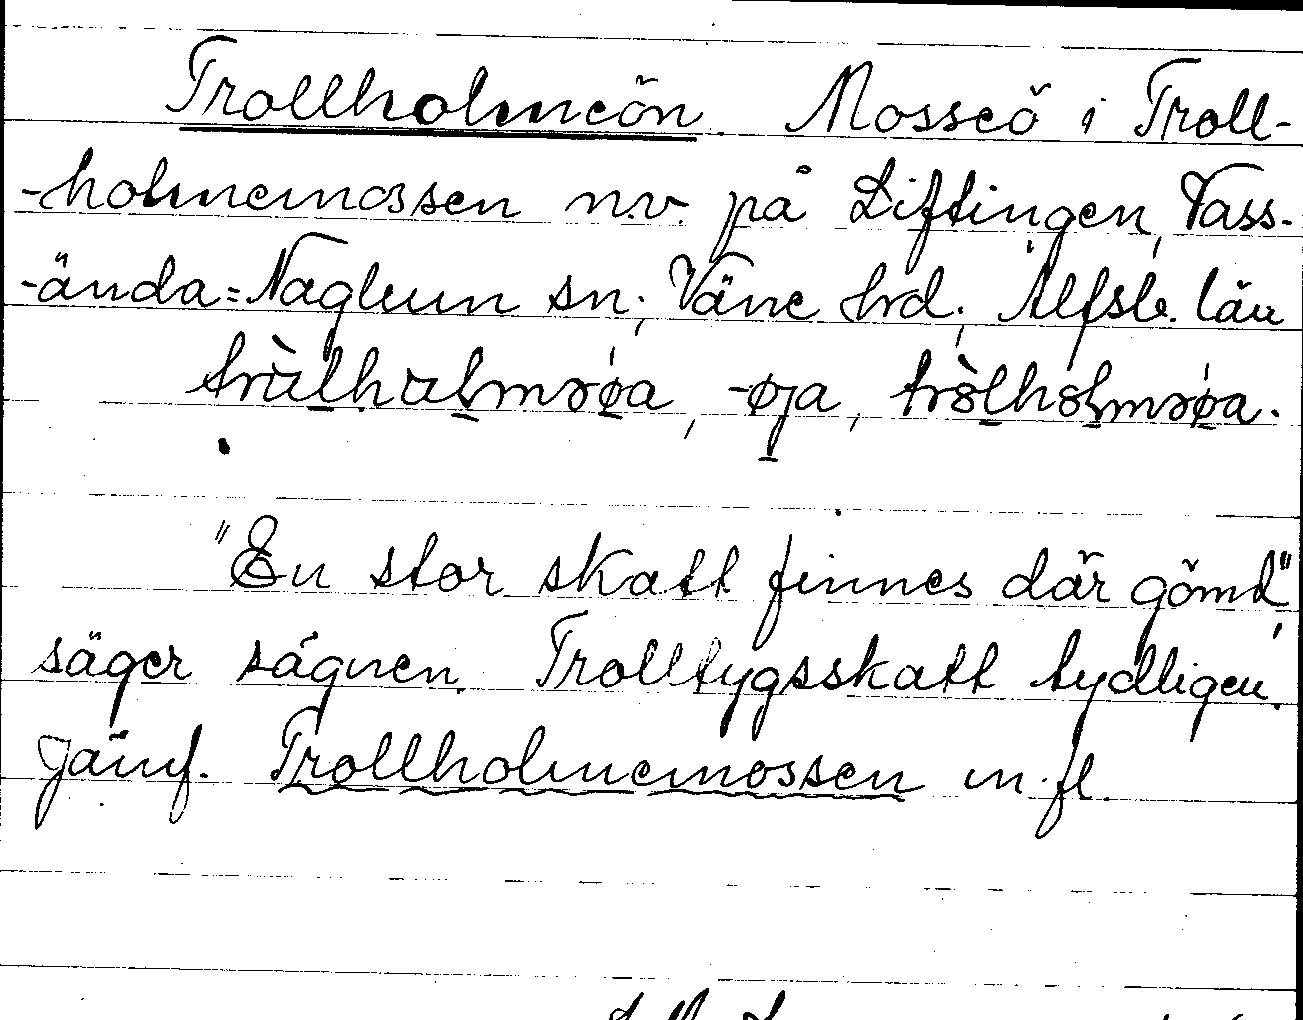 Trollholmeön. Mosseö i Troll-
-holmemossen n.v. på Liftingen, Vass-
-ända=Naglum sn; Väne hrd; Älfsb. län
tròlhòlmǝøa, -øja, tròlhòlmǝøa.
"En stor skatt finnes där gömd",
säger sägnen. Trolltygsskatt tydligen.
Jämf. Trollholmemossen m.fl.